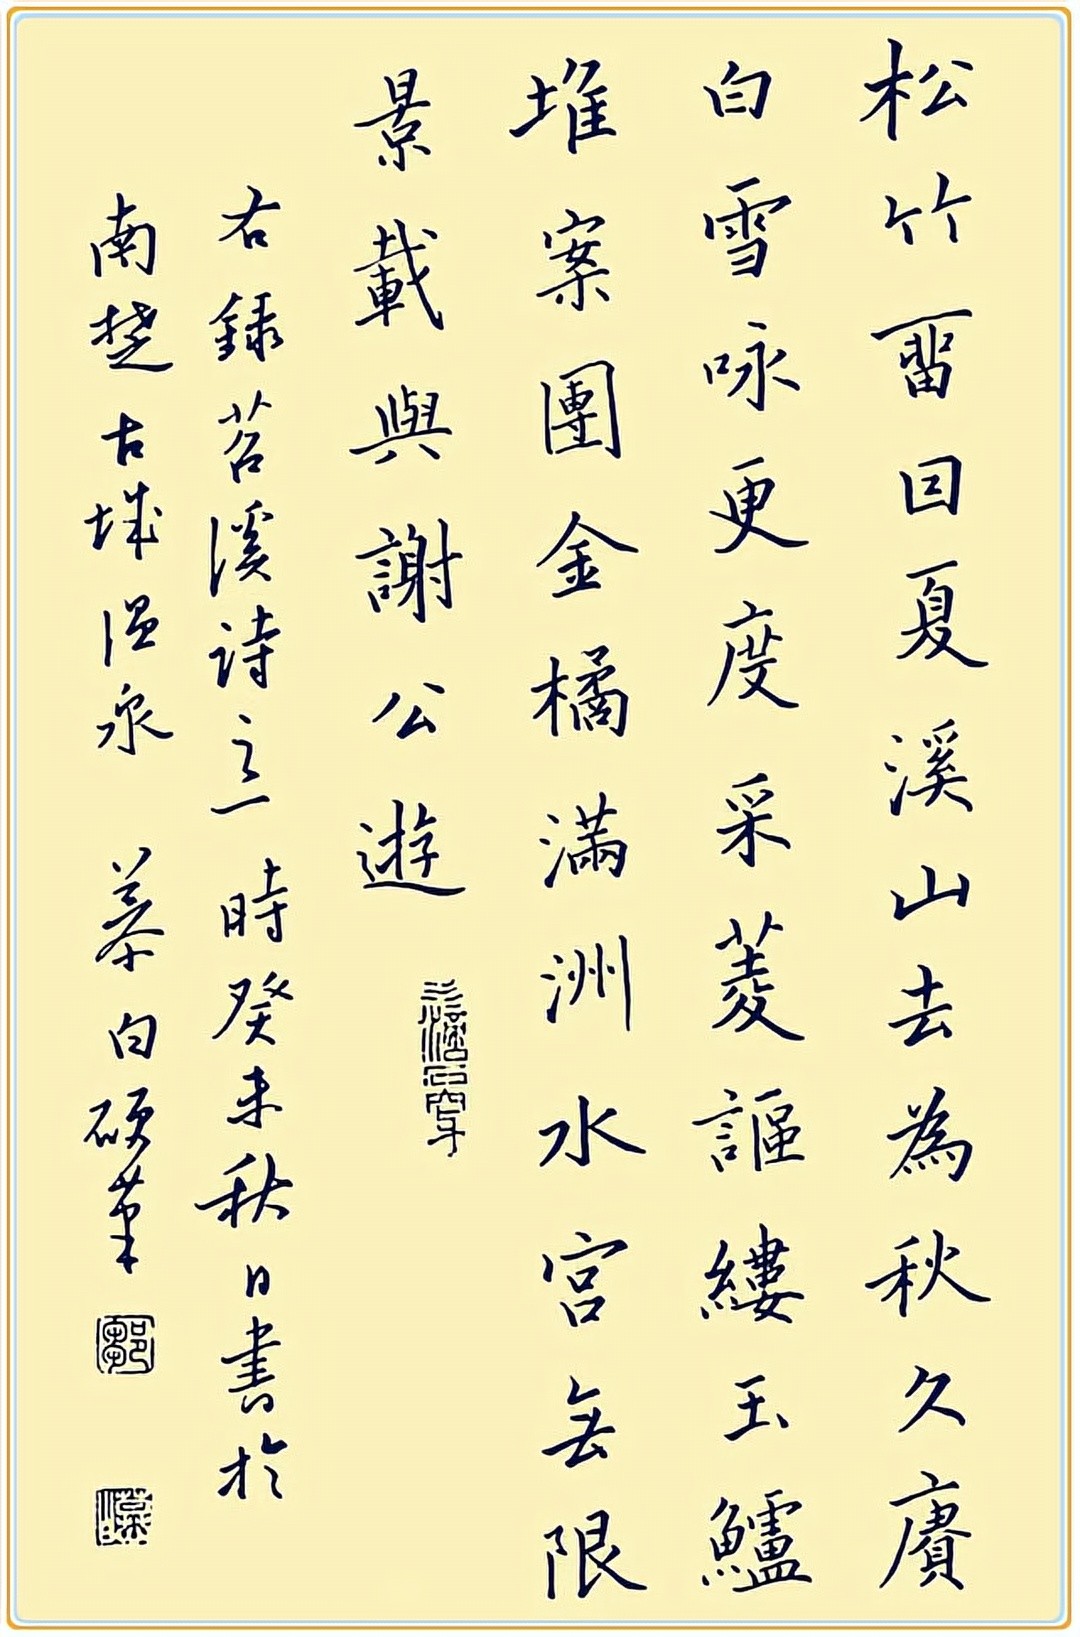 松竹畱囙夏溪山去為秋久賡
白雪咏更度采菱謳縷玉鱸
堆案團金橘滿洲水宮無限
景載與謝公遊
水滴石穿
右録苕溪詩之一 時癸未秋日書於
南楚古城温泉 慕白硬筆
鄒